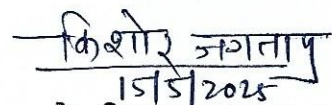 किशोर जगताप
15/5/2025